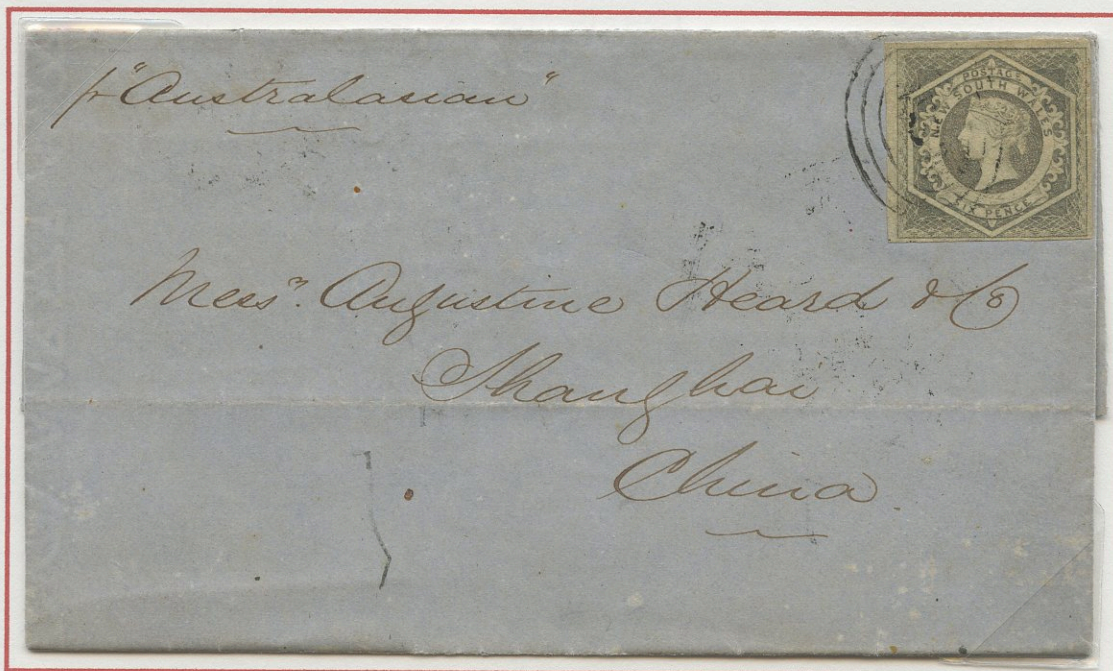 pr "Australasian"
POSTAGE
NEW SOUTH WALES
SIX PENCE
Messrs. Augustine Heard & Co
Shanghai
China